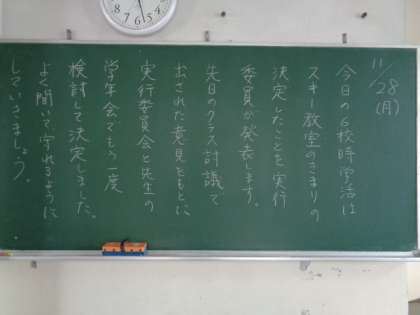 11/28(月)
今日の6校時学活は
スキー教室のきまりの
決定したことを実行
委員が発表します。
先日のクラス討議で
出された意見をもとに
実行委員会と先生の
学年会でもう一度
検討して決定しました。
よく聞いて守れるように
していきましょう。